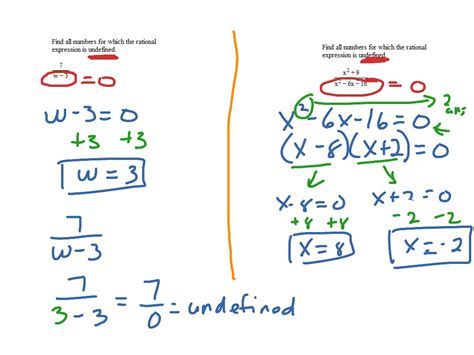 Find all numbers for which the rational
expression is undefined.
7
w − 3
= 0
w - 3 = 0
+3 +3
w = 3
7
w - 3
7
3 - 3
=
7
0
= undefined
Find all numbers for which the rational
expression is undefined.
x² + 9
x² − 6x − 16
= 0
2 ans
x² - 6x - 16 = 0
(x - 8)(x + 2) = 0
x - 8 = 0
+8 +8
x = 8
x + 2 = 0
-2 -2
x = -2